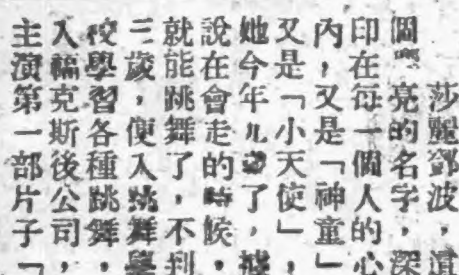 莎麗鄧波,這
個響亮的名字,深
印在每一個人的心
內,又是「神童」,
又是「小天使」,
她今年九歲了,據
說在會走的時候,
就能跳舞了,不到
三歲,便入跳舞學
校學習各種跳舞,
入福克斯後公司,
主演第一部片子「